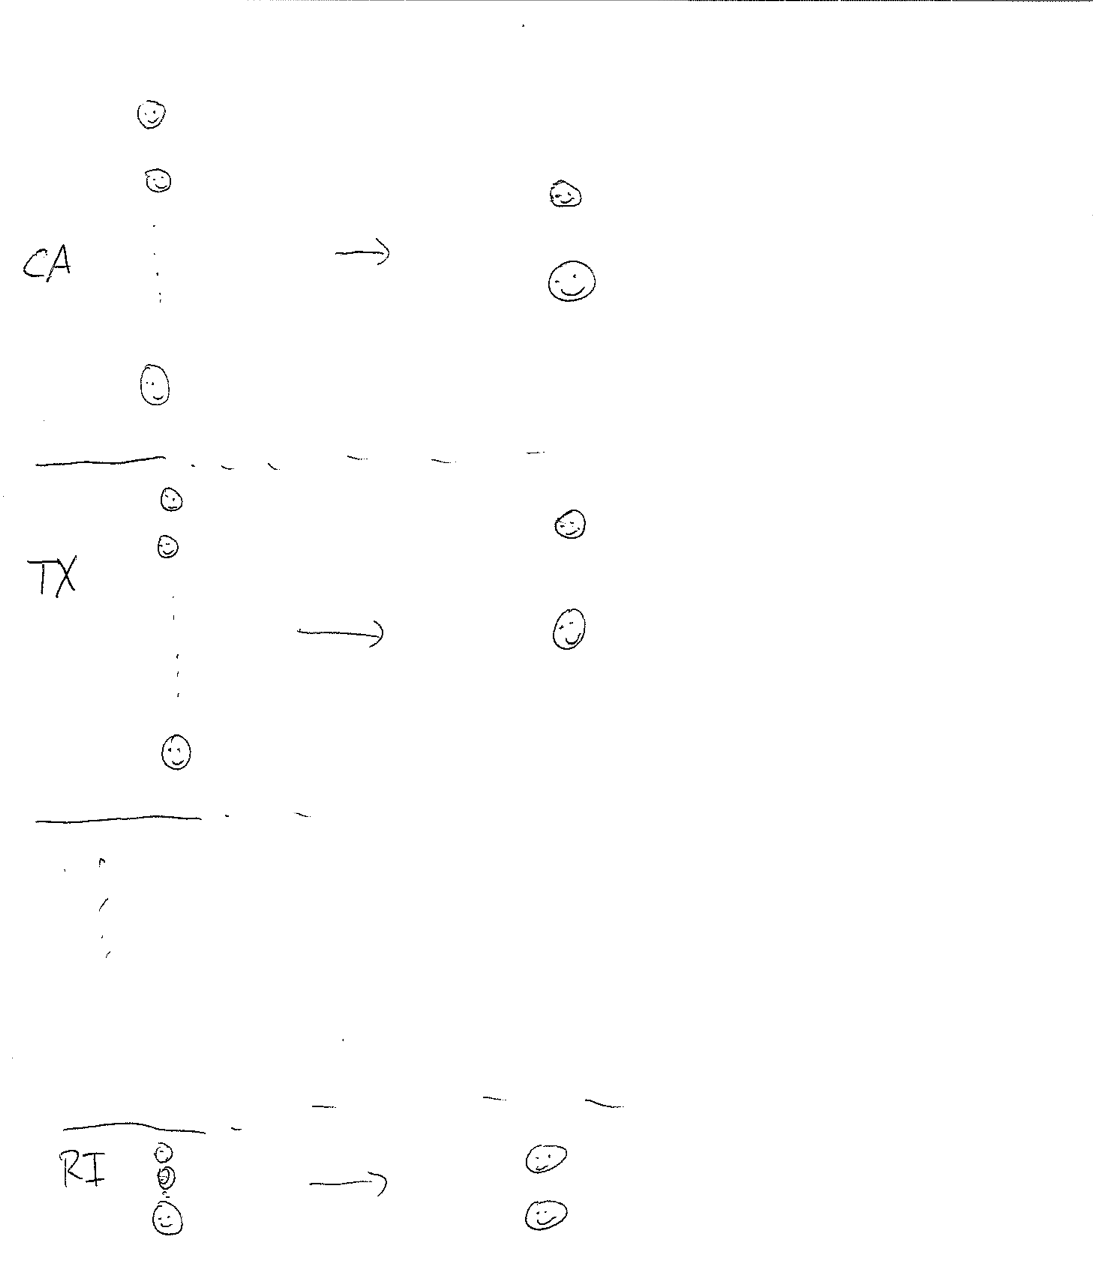 CA
TX
RI